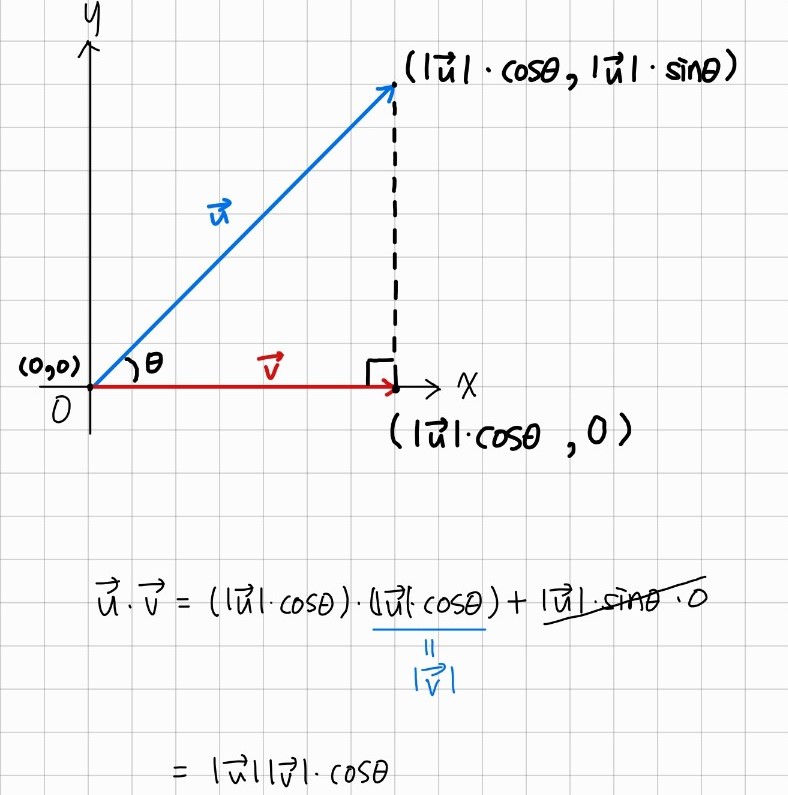 y
(|u⃗|·cosθ, |u⃗|·sinθ)
u⃗
(0,0)
θ
v⃗
x
O
(|u⃗|·cosθ, 0)
u⃗·v⃗ = (|u⃗|·cosθ)·(|u⃗|·cosθ) + |u⃗|·sinθ·0
=
|v⃗|
= |u⃗||v⃗|·cosθ